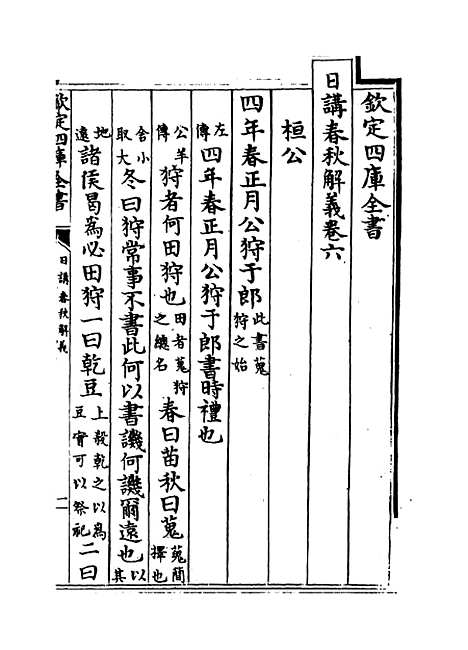 欽定四庫全書
日講春秋解義卷六
桓公
四年春正月公狩于郎此書蒐狩之始
左傳四年春正月公狩于郎書時禮也
公羊傳狩者何田狩也田者蒐狩之總名春曰苗秋曰蒐蒐簡擇也
舍小取大冬曰狩常事不書此何以書譏何譏爾遠也以其
地遠諸侯曷為必田狩一曰乾豆上殺乾之以為豆實可以祭祀二曰
欽定四庫全書
日講春秋解義
一